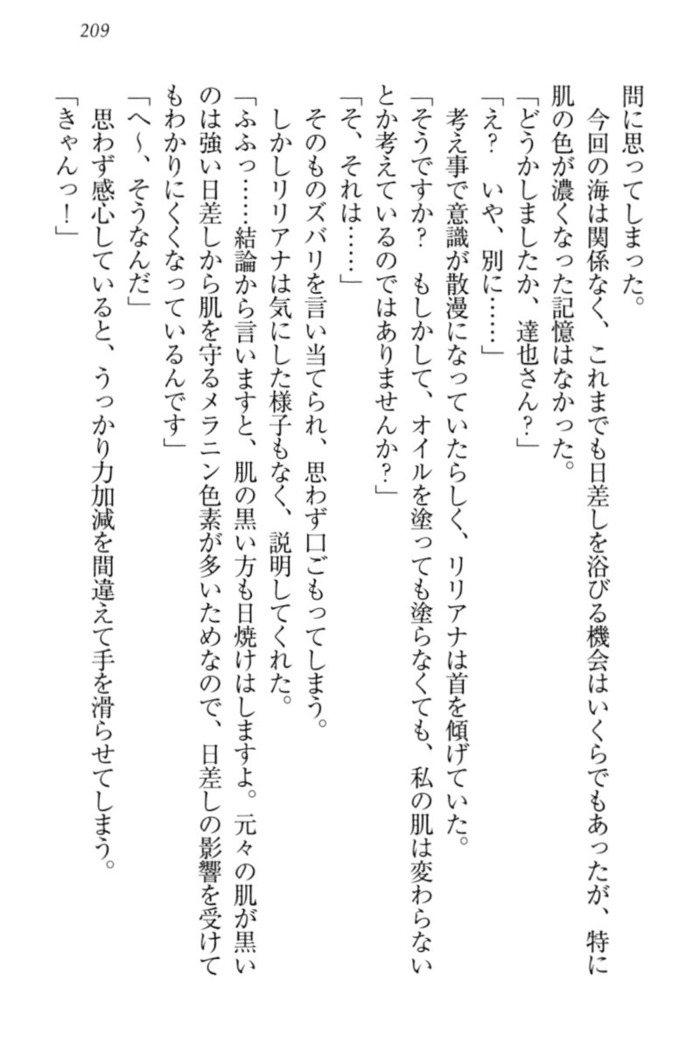 209
問に思ってしまった。
今回の海は関係なく、これまでも日差しを浴びる機会はいくらでもあったが、特に
肌の色が濃くなった記憶はなかった。
「どうかしましたか、達也さん?」
「え? いや、別に……」
考え事で意識が散漫になっていたらしく、リリアナは首を傾げていた。
「そうですか? もしかして、オイルを塗っても塗らなくても、私の肌は変わらない
とか考えているのではありませんか?」
「そ、それは……」
そのものズバリを言い当てられ、思わず口ごもってしまう。
しかしリリアナは気にした様子もなく、説明してくれた。
「ふふっ……結論から言いますと、肌の黒い方も日焼けはしますよ。元々の肌が黒い
のは強い日差しから肌を守るメラニン色素が多いためなので、日差しの影響を受けて
もわかりにくくなっているんです」
「へ〜、そうなんだ」
思わず感心していると、うっかり力加減を間違えて手を滑らせてしまう。
「きゃんっ!」